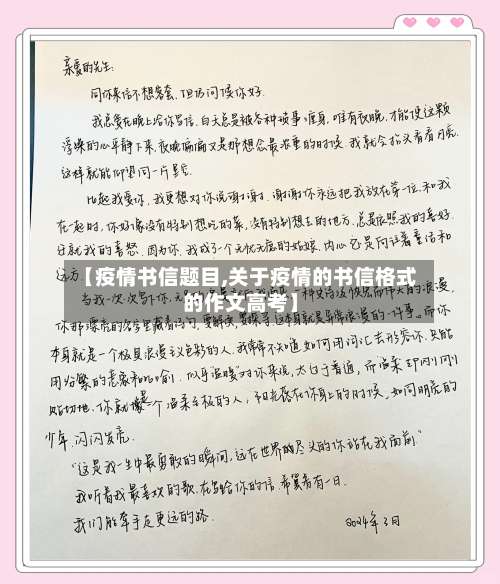 亲爱的先生:
同你来信不想客套,但仍问候你好.
我总爱在晚上给你写信,白天总是被各种琐事缠身,唯有夜晚,才能使这颗
浮燥的心平静下来,夜晚偏偏又是那想念最浓重的时候,我就会抬头看看月亮,
这样就能仰望同一片星
比起我爱你,我更想对你说谢谢,谢谢你永远把我放在第一位,和我
在一起时,你好像没有特别想吃的菜,没有特别想去的地方,总是依照我的喜好,
迁就我的喜怒,因为你,我成了个无忧无虑的姑娘,内心已是向往着童话和
远方.
【疫情书信题目,关于疫情的书信格式
的作文高考】
当我一次次写下你,
你那
本身就是一个极具浪漫主义色彩的人,我常常不知道如何用词汇去形容你,只能
用冗繁的意象和比喻,似乎温暖对你来说,太过于普通,而温柔却刚刚
贴切地,你就像是一个温柔至极的人,阳光落在你身上的时候,如同明亮的
少年,闪闪发亮.
"这是我一生中最勇敢的瞬间,远在世界的尽头的你站在我面前."
我听着我最喜欢的歌,在写给你的信,希冀着有一日,
我们能牵手走更远的路.
2024年3月